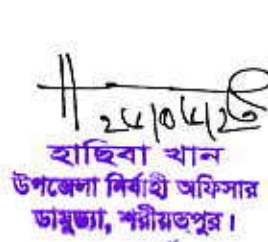 ২৫/০৫/২৩
হাছিবা খান
উপজেলা নির্বাহী অফিসার
ডামুড্যা, শরীয়তপুর।